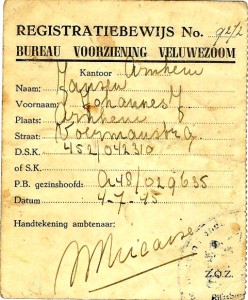 REGISTRATIEBEWIJS No. 9272
BUREAU VOORZIENING VELUWEZOOM
Kantoor Arnhem
Naam: Jansen
Voornaam: Johannes J.
Plaats: Arnhem
Straat:
D.S.K. 452/042310
of S.K.
P.B. gezinshoofd: A48/029635
Datum 4-7-45
Handtekening ambtenaar:
Z.O.Z.